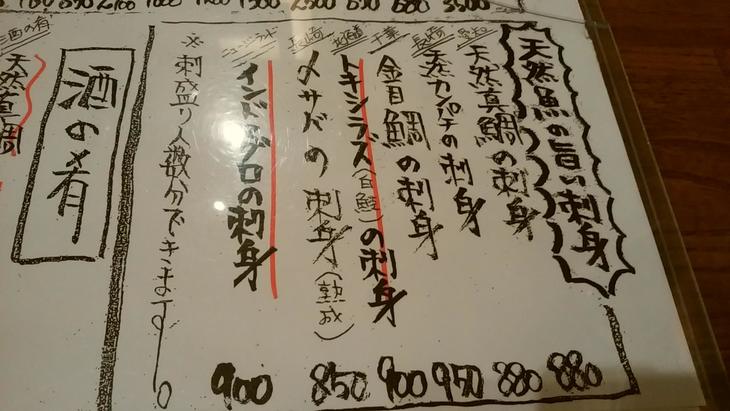 3500
680
天然魚の旨い刺身
天然真鯛の刺身
880
長崎
天然カンパチの刺身
880
千葉
金目鯛の刺身
970
北海道
トキシラズ(白鮭)の刺身
900
〆サバの刺身(熟成)
850
ニュージーランド
インドマグロの刺身
900
※刺盛り人数分できます。
酒の肴
天然真鯛